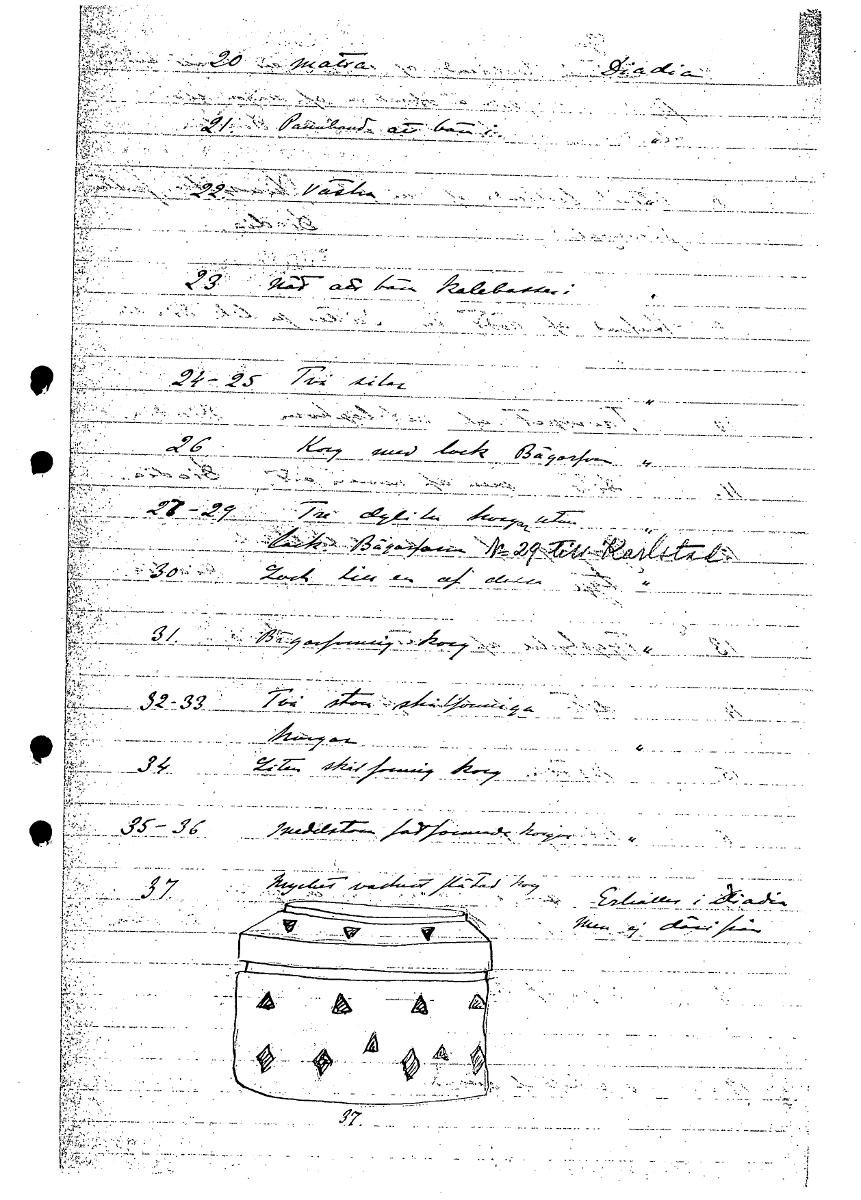 20 matta Diadia
21. Pannband att bära i. "
22 Väska "
23 Nät att bära Kalebasser i "
24-25 Två silar "
26 Korg med lock Bägarform "
27-29 Tre dylika korgar utan "
lock. Bägarform No 29 till Karlstad.
30 Lock till en af dessa "
31. Bägarformig korg "
32-33 Två stora skålformiga
korgar "
34 Liten skålformig korg
35-36 Medelstora fatformade korgar "
37 Mycket vackert flätad korg Erhållen i Diadia
men ej därifrån
37.